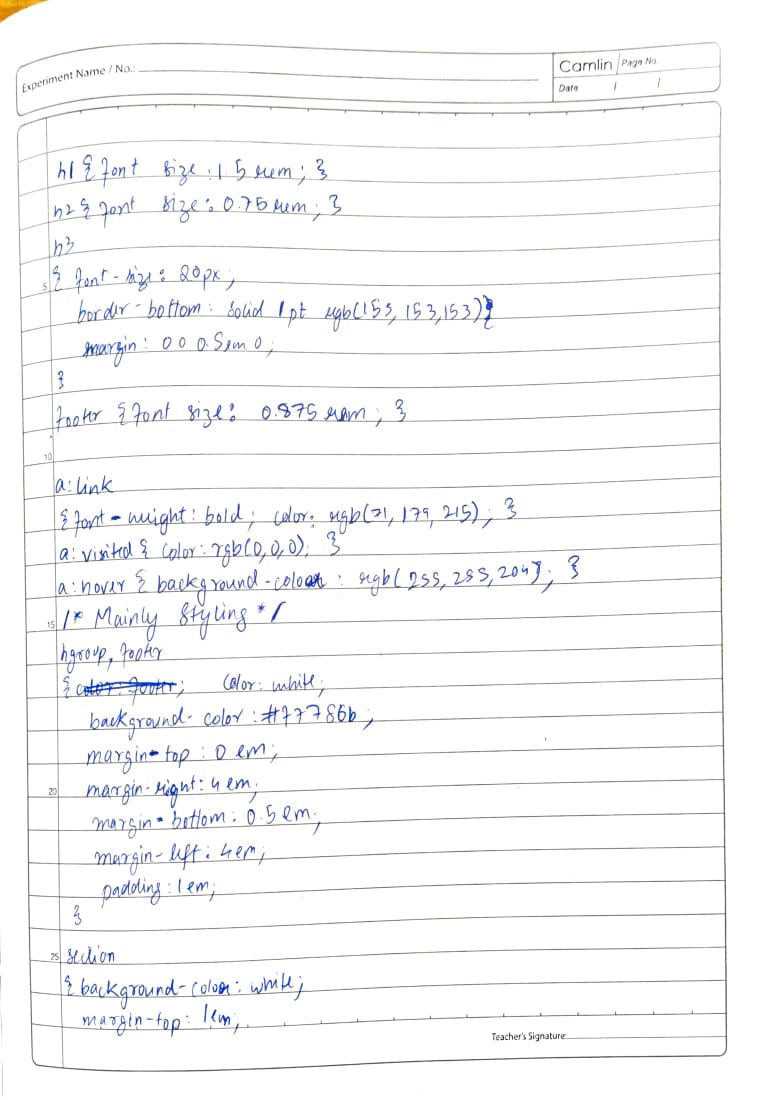 Experiment Name / No.:
Camlin Page No.
Date / /
h1 { font size : 1.5 rem ; }
h2 { font size : 0.75 rem ; }
h3
5 { font-size : 20px ;
border-bottom : solid 1pt rgb(153, 153, 153) }
margin : 0 0 0.5em 0 ;
}
footer { font size : 0.875 rem ; }
10
a:link
{ font-weight : bold ; color : rgb(71, 179, 215) ; }
a:visited { color : rgb(0,0,0) ; }
a:hover { background-color : rgb(255, 255, 204) ; }
15 /* Mainly Styling */
hgroup, footer
{ color: footer; color : white ;
background-color : #77786b ;
margin-top : 0 em ;
20 margin-right : 4 em ;
margin-bottom : 0.5 em ;
margin-left : 4em ;
padding : 1 em ;
}
25 section
{ background-color : white ;
margin-top : 1em ;
Teacher's Signature: